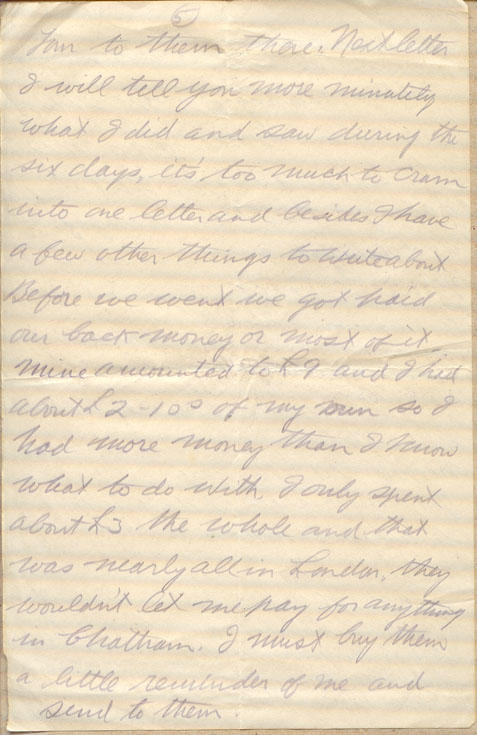 5
to them there. Next letter
I will tell you more minutely
what I did and saw during the
six days, it's too much to cram
into one letter and besides I have
a few other things to write about
Before we went we got paid
our back money or most of it
mine amounted to £9 and I had
about £2-10s of my own so I
had more money than I know
what to do with, I only spent
about £3 the whole and that
was nearly all in London, they
wouldn't let me pay for anything
in Chatham. I must buy them
a little reminder of me and
send to them.